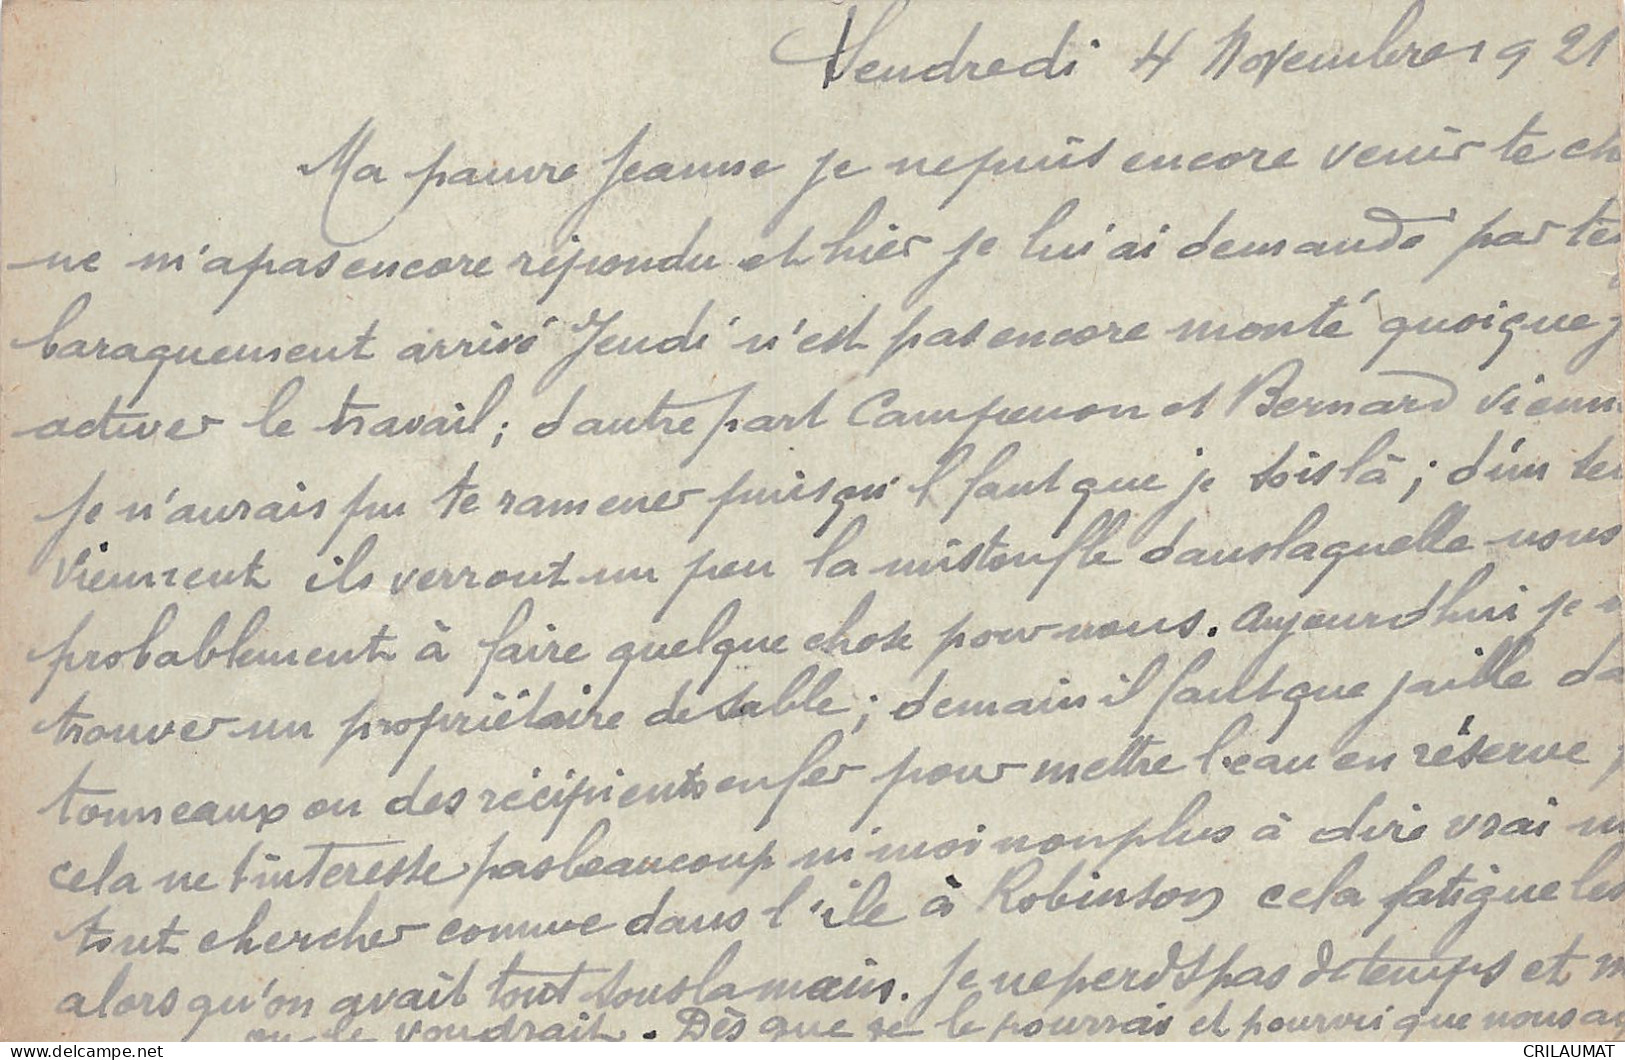 Vendredi 4 Novembre 1921
Ma pauvre Jeanne je ne puis encore venir te ch
ne m'a pas encore répondu et hier je lui ai demandé par té
baraquement arrivé Jeudi n'est pas encore monté quoique j
activer le travail ; d'autre part Campenon et Bernard vienn
je n'aurais pu te ramener puisqu'il faut que je sois là ; d'un
viennent ils verront un peu la mistoufle dans laquelle nous
probablement à faire quelque chose pour nous. Aujourd'hui je
trouver un propriétaire de sable ; demain il faut que j'aille da
tonneaux ou des récipients en fer pour mettre l'eau en réserve
cela ne t'intéresse pas beaucoup ni moi non plus à dire vrai
tout chercher comme dans l'île à Robinson cela fatigue les
alors qu'on avait tout sous la main. Je ne perds pas de temps et m
on le voudrait. Dès que je le pourrai et pourvu que nous ay
CRILAUMAT